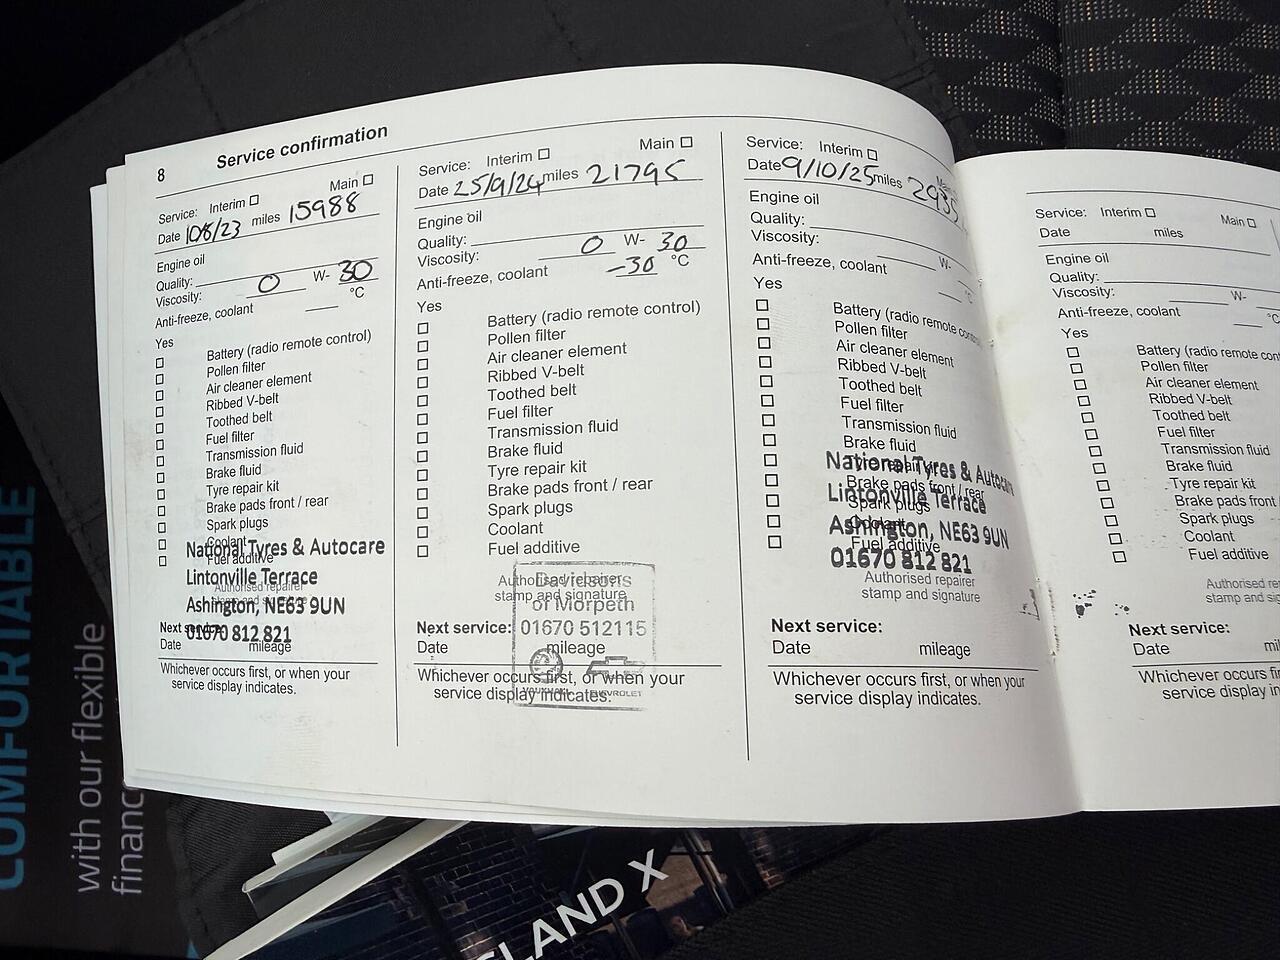 8 Service confirmation
Service: Interim Main
Date 10/8/23 miles 15988
Engine oil
Quality:
Viscosity: 0 W- 30
Anti-freeze, coolant °C
Yes
Battery (radio remote control)
Pollen filter
Air cleaner element
Ribbed V-belt
Toothed belt
Fuel filter
Transmission fluid
Brake fluid
Tyre repair kit
Brake pads front / rear
Spark plugs
Coolant
Fuel additive
National Tyres & Autocare
Lintonville Terrace
Authorised repairer
stamp and signature
Ashington, NE63 9UN
Next service:
01670 812 821
Date mileage
Whichever occurs first, or when your
service display indicates.
Service: Interim Main
Date 25/9/24 miles 21795
Engine oil
Quality:
Viscosity: 0 W- 30
Anti-freeze, coolant -30 °C
Yes
Battery (radio remote control)
Pollen filter
Air cleaner element
Ribbed V-belt
Toothed belt
Fuel filter
Transmission fluid
Brake fluid
Tyre repair kit
Brake pads front / rear
Spark plugs
Coolant
Fuel additive
Authorised repairer
stamp and signature
of Morpeth
Next service: 01670 512115
Date mileage
Whichever occurs first, or when your
service display indicates.
VAUXHALL CHEVROLET
Service: Interim Main
Date 9/10/25 miles
Engine oil
Quality:
Viscosity: W-
Anti-freeze, coolant °C
Yes
Battery (radio remote
Pollen filter
Air cleaner element
Ribbed V-belt
Toothed belt
Fuel filter
Transmission fluid
Brake fluid
National Tyres & Autocare
Tyre repair kit
Brake pads front / rear
Lintonville Terrace
Spark plugs
Coolant
Ashington, NE63 9UN
Fuel additive
01670 812 821
Authorised repairer
stamp and signature
Next service:
Date mileage
Whichever occurs first, or when your
service display indicates.
Service: Interim Main
Date miles
Engine oil
Quality:
Viscosity: W-
Anti-freeze, coolant °C
Yes
Battery (radio remote cont
Pollen filter
Air cleaner element
Ribbed V-belt
Toothed belt
Fuel filter
Transmission fluid
Brake fluid
Tyre repair kit
Brake pads front
Spark plugs
Coolant
Fuel additive
Authorised re
stamp and sig
Next service:
Date mil
Whichever occurs fi
service display in
COMFORTABLE
with our flexible
financ
LAND X